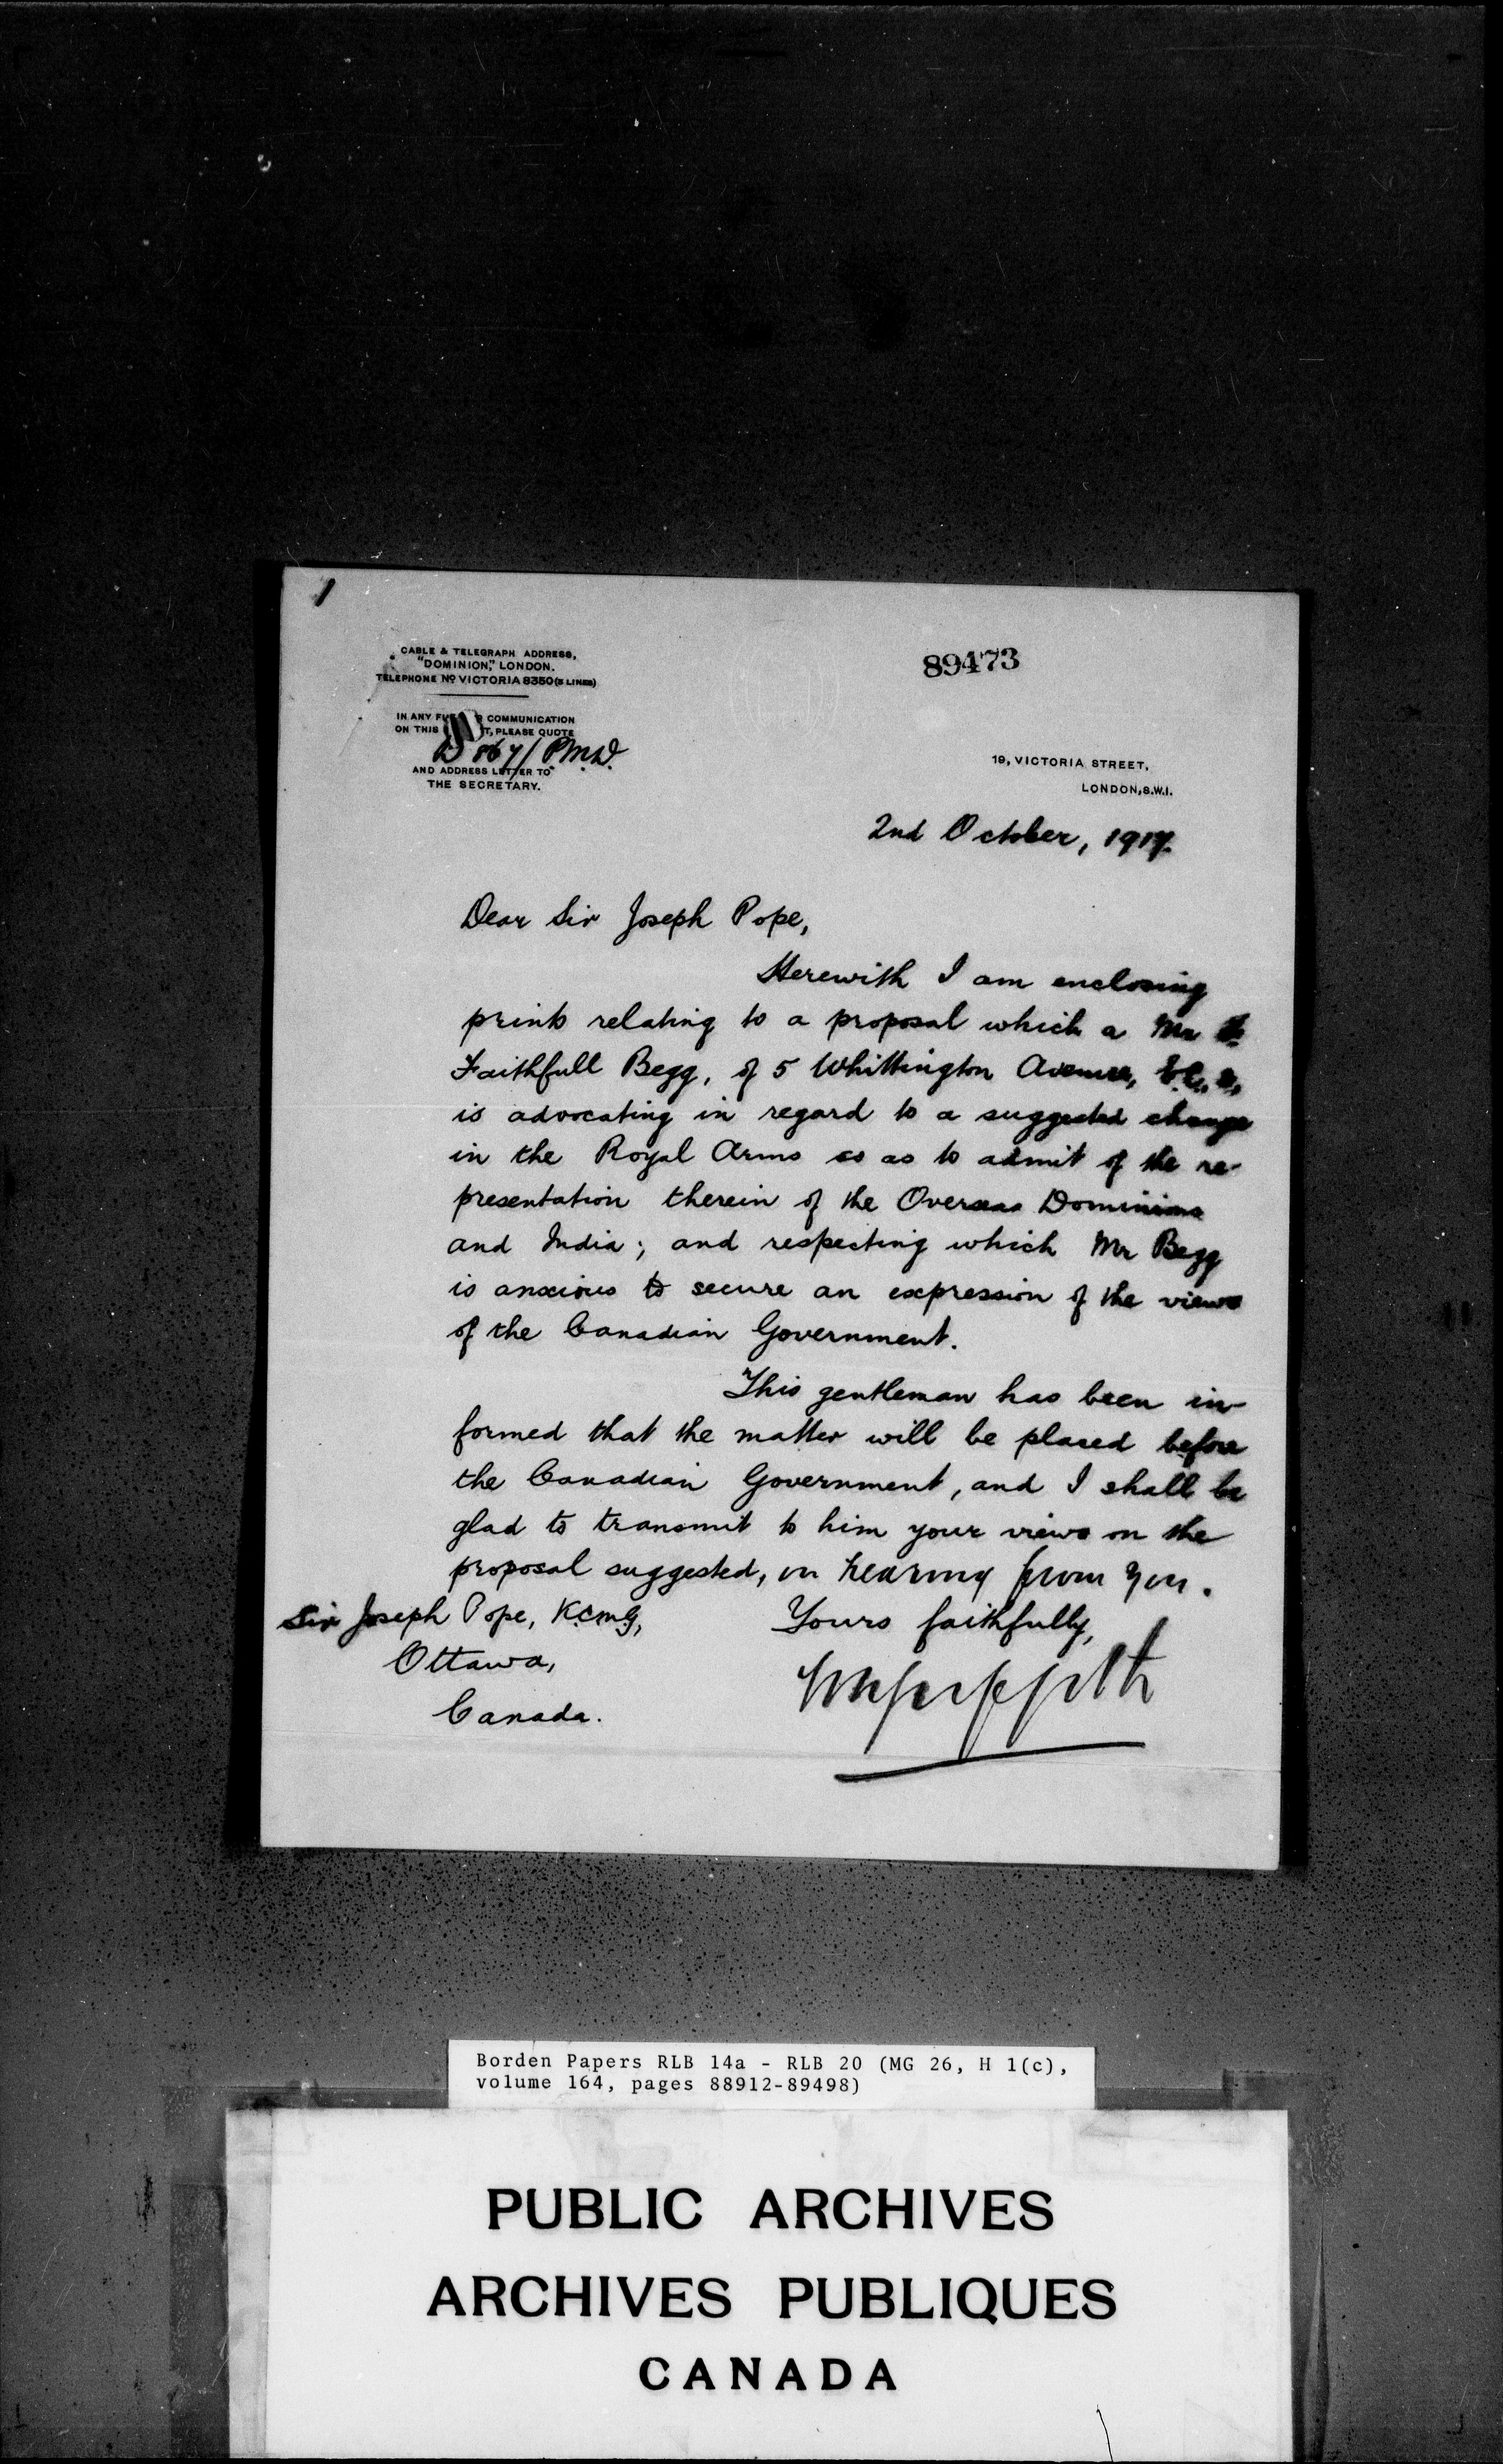 1
CABLE & TELEGRAPH ADDRESS,
"DOMINION," LONDON.
TELEPHONE No VICTORIA 8350 (5 LINES)
89473
IN ANY COMMUNICATION
ON THIS PLEASE QUOTE
AND ADDRESS LETTER TO
THE SECRETARY.
19, VICTORIA STREET,
LONDON, S.W.1.
2nd October, 1917.
Dear Sir Joseph Pope,
Herewith I am enclosing
prints relating to a proposal which a Mr
Faithfull Begg, of 5 Whittington Avenue, E.C.
is advocating in regard to a suggested change
in the Royal Arms so as to admit of the re-
presentation therein of the Overseas Dominions
and India; and respecting which Mr Begg
is anxious to secure an expression of the views
of the Canadian Government.
This gentleman has been in-
formed that the matter will be placed before
the Canadian Government, and I shall be
glad to transmit to him your views on the
proposal suggested, on hearing from you.
Sir Joseph Pope, K.C.M.G,
Yours faithfully,
Ottawa,
Canada.
Borden Papers RLB 14a - RLB 20 (MG 26, H 1(c),
volume 164, pages 88912-89498)
PUBLIC ARCHIVES
ARCHIVES PUBLIQUES
CANADA